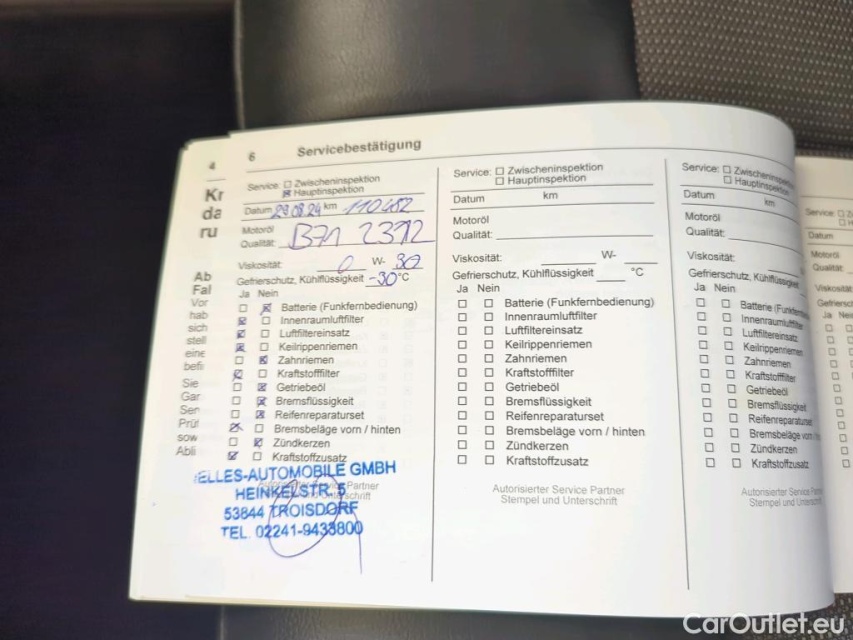 4
Kr
da
ru
Ab
Fal
Vor
hab
sich
stell
eine
befi
Sie
Gar
Ser
Prüf
sow
Abli
6 Servicebestätigung
Service: ☐ Zwischeninspektion
☒ Hauptinspektion
Datum 29.08.24 km 110482
Motoröl
Qualität:
Viskosität: 0 W- 30
Gefrierschutz, Kühlflüssigkeit -30 °C
Ja Nein
☐ ☒ Batterie (Funkfernbedienung)
☒ ☐ Innenraumluftfilter
☒ ☐ Luftfiltereinsatz
☒ ☐ Keilrippenriemen
☐ ☒ Zahnriemen
☒ ☐ Kraftstofffilter
☐ ☒ Getriebeöl
☐ ☒ Bremsflüssigkeit
☐ ☒ Reifenreparaturset
☒ ☐ Bremsbeläge vorn / hinten
☐ ☒ Zündkerzen
☒ ☐ Kraftstoffzusatz
ELLES-AUTOMOBILE GMBH
HEINKELSTR. 5
53844 TROISDORF
TEL. 02241-9433800
Service: ☐ Zwischeninspektion
☐ Hauptinspektion
Datum km
Motoröl
Qualität:
Viskosität: W-
Gefrierschutz, Kühlflüssigkeit °C
Ja Nein
☐ ☐ Batterie (Funkfernbedienung)
☐ ☐ Innenraumluftfilter
☐ ☐ Luftfiltereinsatz
☐ ☐ Keilrippenriemen
☐ ☐ Zahnriemen
☐ ☐ Kraftstofffilter
☐ ☐ Getriebeöl
☐ ☐ Bremsflüssigkeit
☐ ☐ Reifenreparaturset
☐ ☐ Bremsbeläge vorn / hinten
☐ ☐ Zündkerzen
☐ ☐ Kraftstoffzusatz
Autorisierter Service Partner
Stempel und Unterschrift
Service: ☐ Zwischeninspekt
☐ Hauptinspektion
Datum km
Motoröl
Qualität:
Viskosität:
Gefrierschutz, Kühlflüssigk
Ja Nein
☐ ☐ Batterie (Funkfernb
☐ ☐ Innenraumluftfilter
☐ ☐ Luftfiltereinsatz
☐ ☐ Keilrippenriemen
☐ ☐ Zahnriemen
☐ ☐ Kraftstofffilter
☐ ☐ Getriebeöl
☐ ☐ Bremsflüssigkeit
☐ ☐ Reifenreparaturset
☐ ☐ Bremsbeläge vorn
☐ ☐ Zündkerzen
☐ ☐ Kraftstoffzusatz
Autorisierter Service Par
Stempel und Unterschrif
Service: ☐ Z
☐ H
Datum
Motoröl
Qualität:
Viskosität
Gefriersc
Ja Nei
CarOutlet.eu